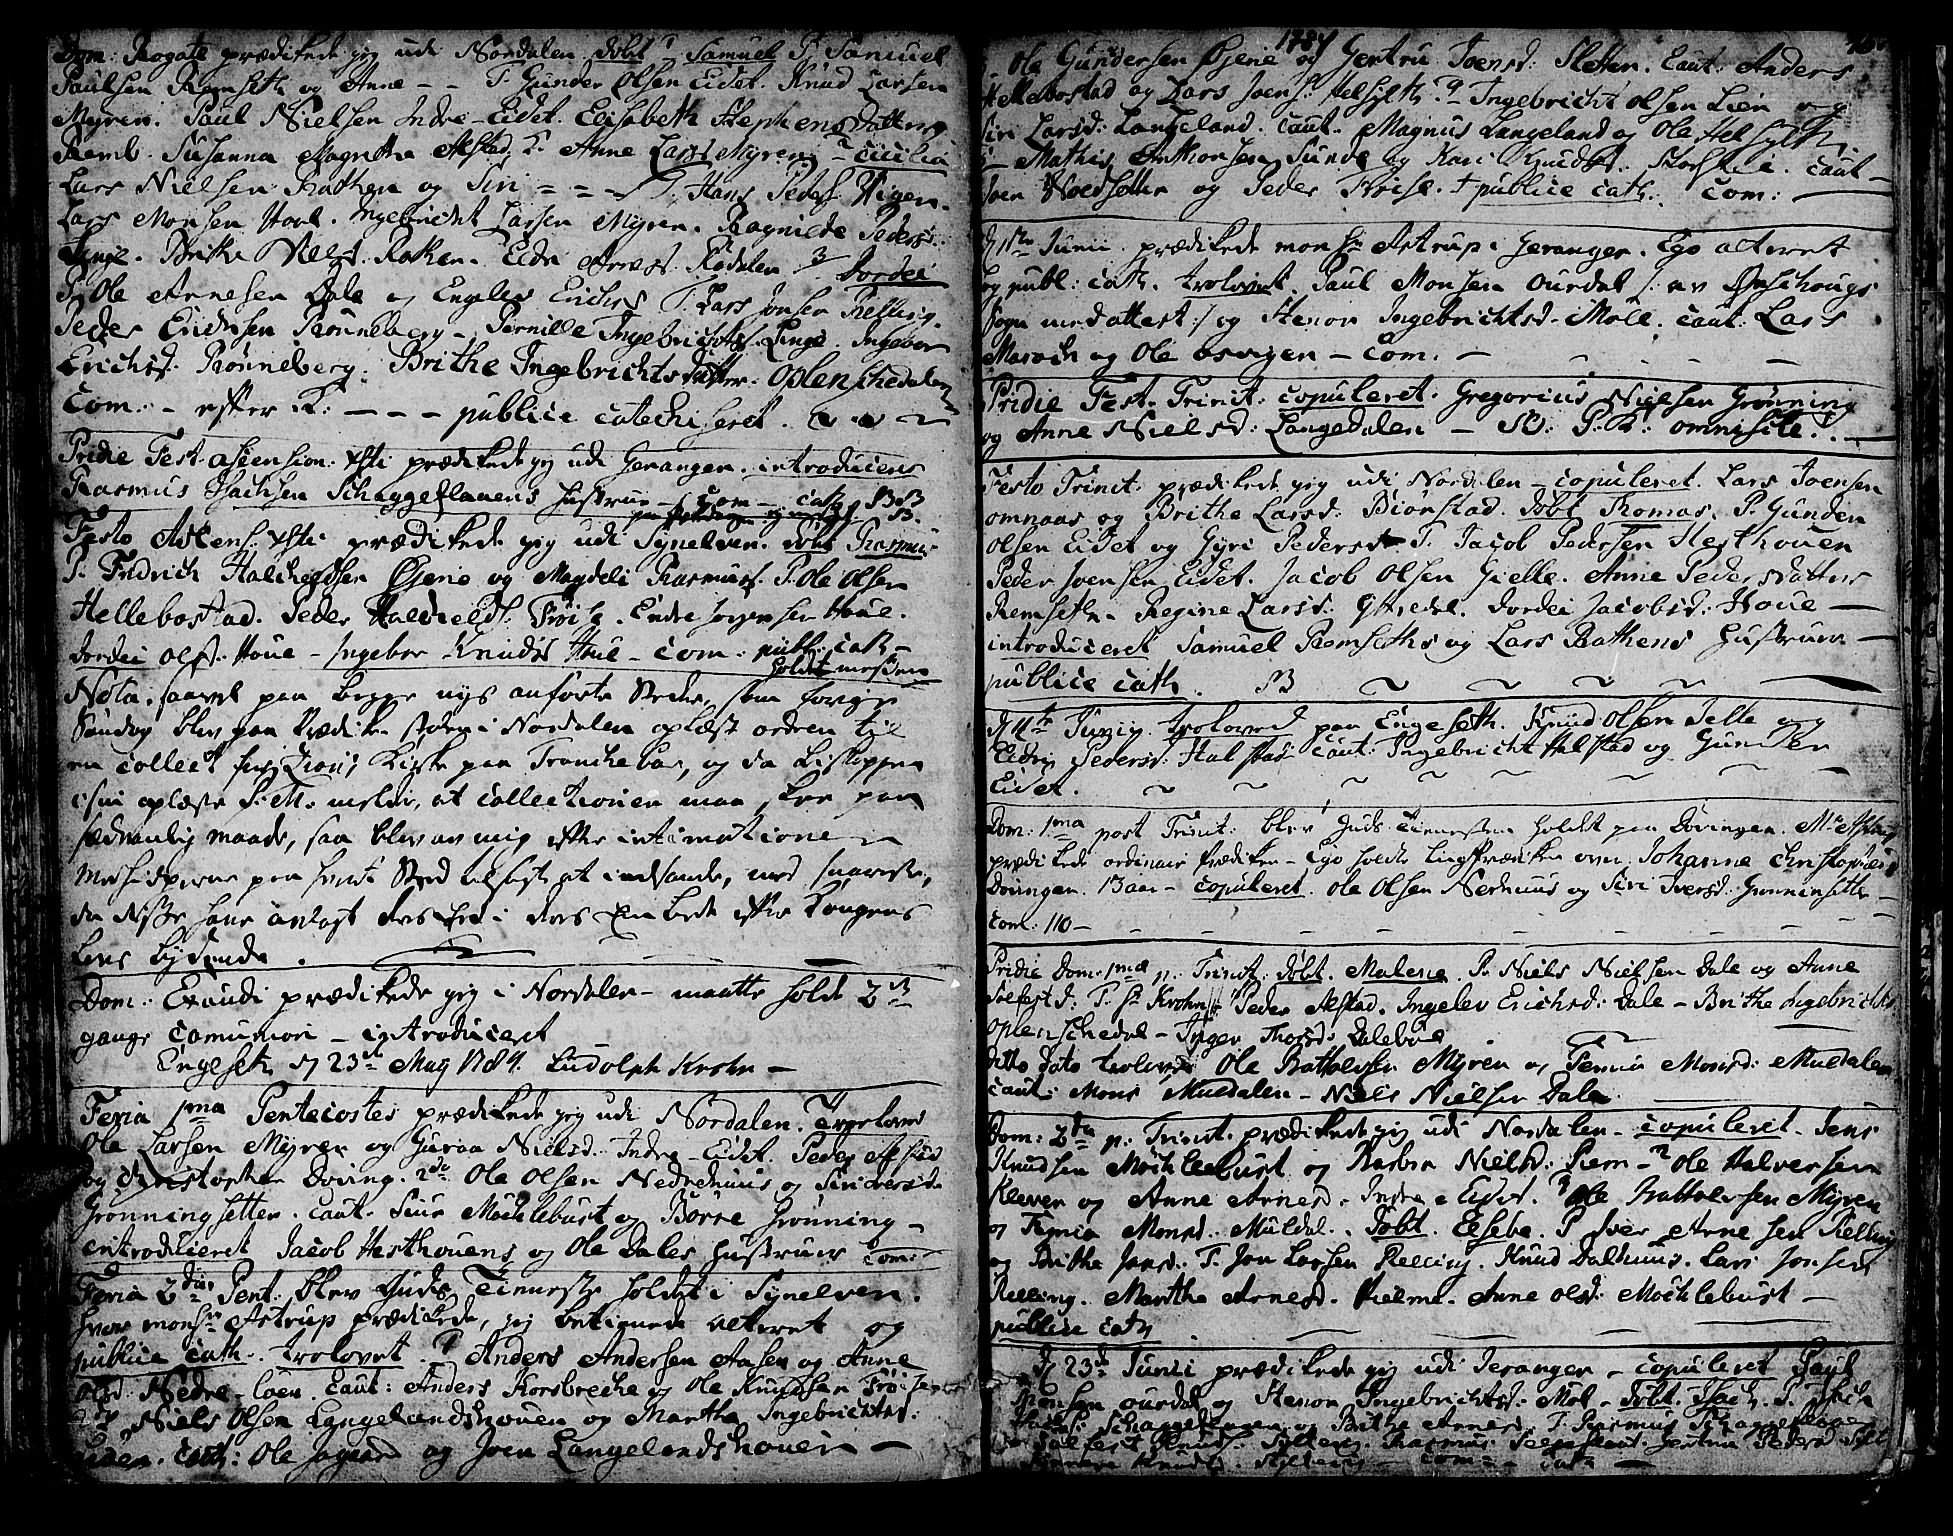 Dom: Rogate prædikede jeg udi Nordalen døbt 1 Samuel P. Samuel
Paulsen Remseth og Anne – – T. Gunder Olsen Eidet. Knud Larsen
Myren. Paul Nielsen Indre-Eidet. Elisabeth Stephensdatter
Remb. Susanna Magrethe Alstad. 2. Anne Lars Myren, Cicilia
Lars Nielsen Rathen og Siri = = = T. Hans Peders: Vigen.
Lars Monsen Hoel. Ingebricht Larsen Myren. Ragnilde Peders:
Linge. Brithe Niels: Rathen. Eidri Arnesd. Rødalen 3 Dordei
P. Ole Arnesen Dale og Engelev Erichsd T. Lars Jonsen Relling.
Peder Erichsen Rønneberg – Pernille Ingebrichtsd. Linge. Ingebor
Erichsd. Rønneberg. Brithe Ingebrichtsdatter Oplenschedalen
Com: – efter K: – – – publice catechiseret.
Pridie Fest. ascension: Xsti prædikede jeg udi Geranger. introduceret
Rasmus Isachsen Schaggeflauens hustrue – Com – Cath
Festo Ascens: Xsti prædikede jeg udi Synelven. døbt Rasmus
P. Fridrich Halchieldsen Øjene og Magdeli Rasmusd. P. Ole Olsen
Hellebostad. Peder Halchields: Frøise. Endre Jørgensen Houe.
Dordei Olsd. Houe – Ingebor Knudsd Houe – Com: publ: Cath –
holdt messen
Nota. saavel paa begge nys anførte Steder, som forrige
Søndag blev paa Prædikestolen i Nordalen oplæst ordren til
en Collect for Zions Kirke paa Tranchebar, og da Biskoppen
i sin oplæste P.M. melder, at Collectionen maa skee paa
sædvanlig maade, saa blev av mig efter intimationen
Medhielperne paa hvert Sted tilsagt at indsamle, med svarede,
da disse have aflagt deres Eed i deres Embede efter Kongens
Lovs Lydende.
Dom: Exaudi prædikede jeg i Nordalen – maatte holde 2de
gange Comunion – introduceret
Engeseth d 23de May 1784. Ludolph Krohn –
Feria 1ma Pentecostes prædikede jeg udi Nordalen. Troelovet
Ole Larsen Myren og Guraa Nielsd. Indre-Eidet. Peder Alstad
og Christopher Døving. 2do Ole Olsen Nedrehuus og Siri Iversd.
Grønningsetter. Caut: Siur Möchlebust og Børre Grønning –
introduceret Jacob Hesthouens og Ole Dales hustruer Com:
Feria 2da Pent: blev Guds Tieneste holdet i Synelven.
hvor monsr Astrup prædikede, jeg betiente alteret og
publice Cath. trolovet. 1 Anders Andersen Aasen og Anne
Olsd: Nedre-Loen. Caut: Anders Korsbreche og Ole Knudsen Frøise
Niels Olsen Langelandshouen og Marthe Ingebrichtsd:
Caut: Ole Jagard og Joen Langelandshouen –
1784
Ole Gundersen Øjene og Gertru Joensd: Sletten. Caut: Anders
Hellebostad og Lars Joens: Helsylth. 4 Ingebricht Olsen Lien og
Siri Larsd: Langeland. Caut. Magnus Langeland og Ole Helsylth
5 – Mathis Anthonsen Sunde og Kari Knudsd: Storstie. Caut –
Joen Noedsetter og Peder Frøise. + publice Cath: Com: –
d 1ste Junii prædikede monsr Astrup i Geranger. Ego alteret
og publ: Cath. trolovet. Paul Monsen Ourdal /: av Ørschougs
Sogn med attest :/ og Stenor Ingebrichtsd. Møll. Caut: Lars
Marach og Ole Osvigen – Com. –
Pridie Fest. Trinit: copuleret. Gregorius Nielsen Grønning
og Anne Nielsd: Langedalen –
Festo Trinit: prædikede jeg udi Nordalen – copuleret. Lars Joensen
omnaas og Brithe Larsd: Biørstad. døbt Thomas. P. Gunder
Olsen Eidet og Gyri Pedersd T. Jacob Pedersen Hesthouen
Peder Joensen Eidet. Jacob Olsen Gielle. Anne Pedersdatter
Remseth – Regine Larsd: Yttredal. Dordei Jacobsd: Houe –
introduceret Samuel Remseths og Lars Rathens hustruer –
publice Cath.
d 11te Junij trolovet paa Engeseth. Knud Olsen Jelle og
Eidri Pedersd: Halstad Caut: Ingebricht Halstad og Gunder
Eidet.
Dom: 1ma post Trinit: blev Guds Tienesten holdt paa Døvingen. Mr Astrup
prædikede ordinair Prædiken – Ego holdte Liigprædiken over Johanne Christophersd
Døvingen. 13 aar – copuleret. Ole Olsen Nedrhuus og Siri Iversd: Grønninsetter –
Com: 110 –
Pridie Dom: 1ma p. Trinit: døbt. Malene. P. Niels Nielsen Dale og Anne
Solfestd: T. Hr Krohn Peder Alstad. Ingelev Erichsd: Dale – Brithe Ingebrichts
Oplenschedal – Inger Thorsd: Dalebue
dito dato trolovet Ole Bartholesen Myren og Femia Monsd: Muldalen
Caut: Mons Muldalen – Niels Nielsen Dale.
Dom: 2da p. Trinit. prædikede jeg udi Nordalen – copuleret. Jens
Knudsen Möchlebust og Barbra Nielsd: Rem – 2 Ole Halversen
Kleven og Anne Arnesd. Indre Eidet. 3 Ole Bartholesen Myren
og Femia Monsd: Muldal. Døbt. Elsebe. P. Iver Arnesen Relling
og Brithe Jonsd: T. Jon Larsen Relling. Knud Dalhuus. Lars Jonsen
Relling. Marthe Arnesd. Kielme. Anne Olsd: Möchlebust –
publice Cath
d 23de Junii prædikede jeg udi Geranger – copuleret Paul
Monsen Ourdal og Stenor Ingebrichtsd: Møl – døbt. Isach. P. Isach
Schaggeflauen og Brithe Arnesd: T. Rasmus Schaggeflauen
Solfest Knuds: Sylteng. Rasmus Gertru Pedersd Sylt
Knudsd: Sylteng – Com – Cath –